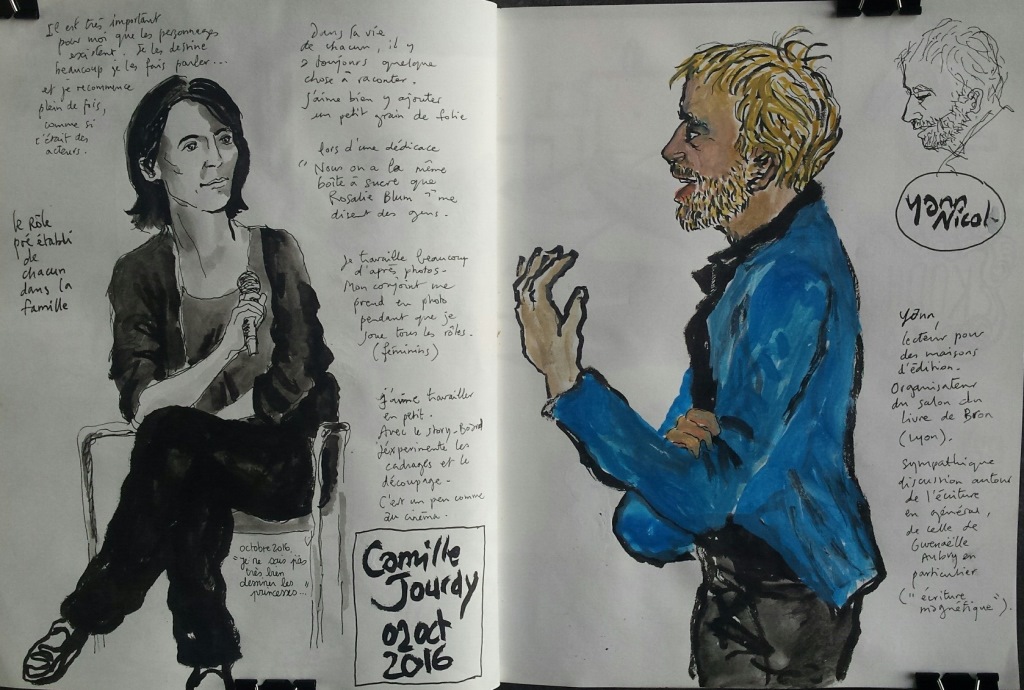 Il est très important
pour moi que les personnages
existent. Je les dessine
beaucoup je les fais parler...
et je recommence
plein de fois,
comme si
c'était des
acteurs.
le Rôle
pré établi
de
chacun
dans la
famille
Dans la vie
de chacun, il y
a toujours quelque
chose à raconter.
J'aime bien y ajouter
un petit grain de folie
lors d'une dédicace
"Nous on a la même
boîte à sucre que
Rosalie Blum" me
disent des gens.
Je travaille beaucoup
d'après photos.
Mon conjoint me
prend en photo
pendant que je
joue tous les rôles.
(féminins)
J'aime travailler
en petit.
Avec le story-Board
j'expérimente les
cadrages et le
découpage.
C'est un peu comme
au cinéma.
octobre 2016,
"je ne sais pas
très bien
dessiner les
princesses..."
Camille
Jourdy
02 oct
2016
Yann
Nicol
Yann,
lecteur pour
des maisons
d'édition.
Organisateur
du salon du
livre de Bron
(Lyon).
Sympathique
discussion autour
de l'écriture
en général,
de celle de
Gwenaëlle
Aubry en
particulier
("écriture
magnétique").